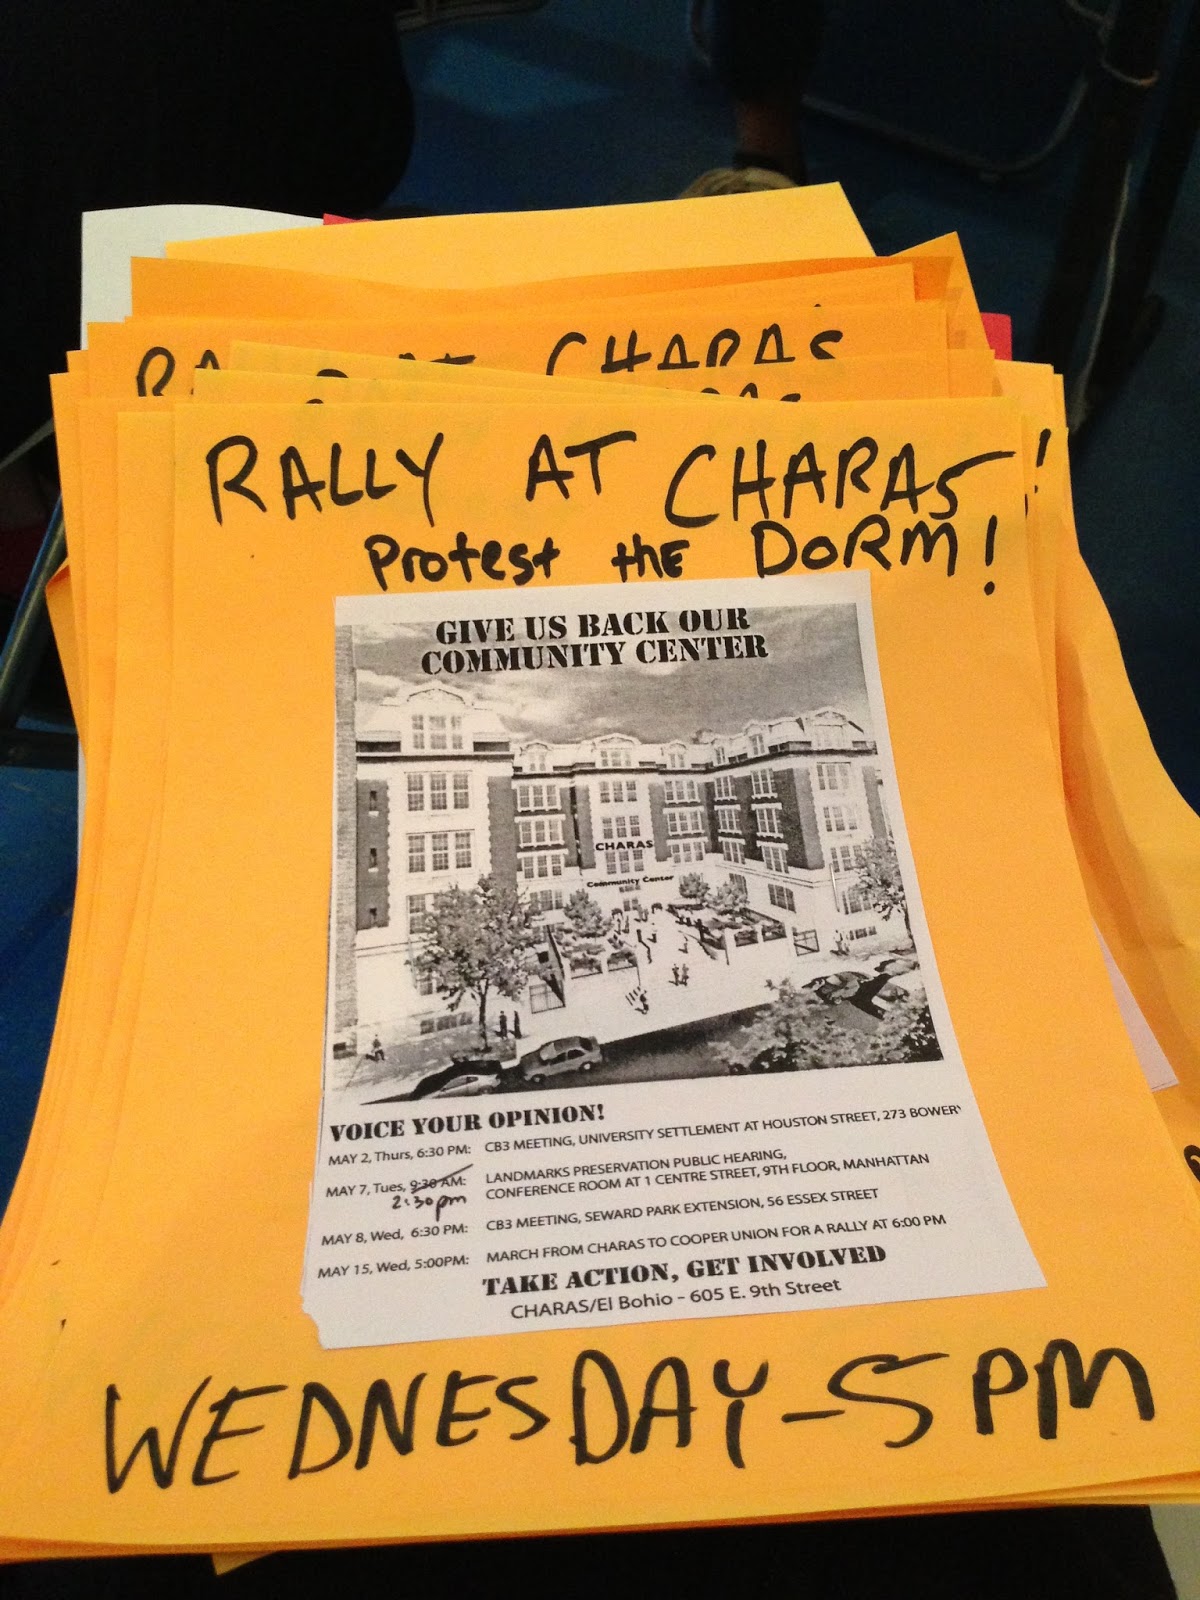 CHARAS
RALLY AT CHARAS!
Protest the DORM!
GIVE US BACK OUR
COMMUNITY CENTER
CHARAS
Community Center
VOICE YOUR OPINION!
MAY 2, Thurs, 6:30 PM: CB3 MEETING, UNIVERSITY SETTLEMENT AT HOUSTON STREET, 273 BOWERY
MAY 7, Tues, 9:30 AM: LANDMARKS PRESERVATION PUBLIC HEARING,
2:30pm CONFERENCE ROOM AT 1 CENTRE STREET, 9TH FLOOR, MANHATTAN
MAY 8, Wed, 6:30 PM: CB3 MEETING, SEWARD PARK EXTENSION, 56 ESSEX STREET
MAY 15, Wed, 5:00PM: MARCH FROM CHARAS TO COOPER UNION FOR A RALLY AT 6:00 PM
TAKE ACTION, GET INVOLVED
CHARAS/El Bohio - 605 E. 9th Street
WEDNESDAY-5PM